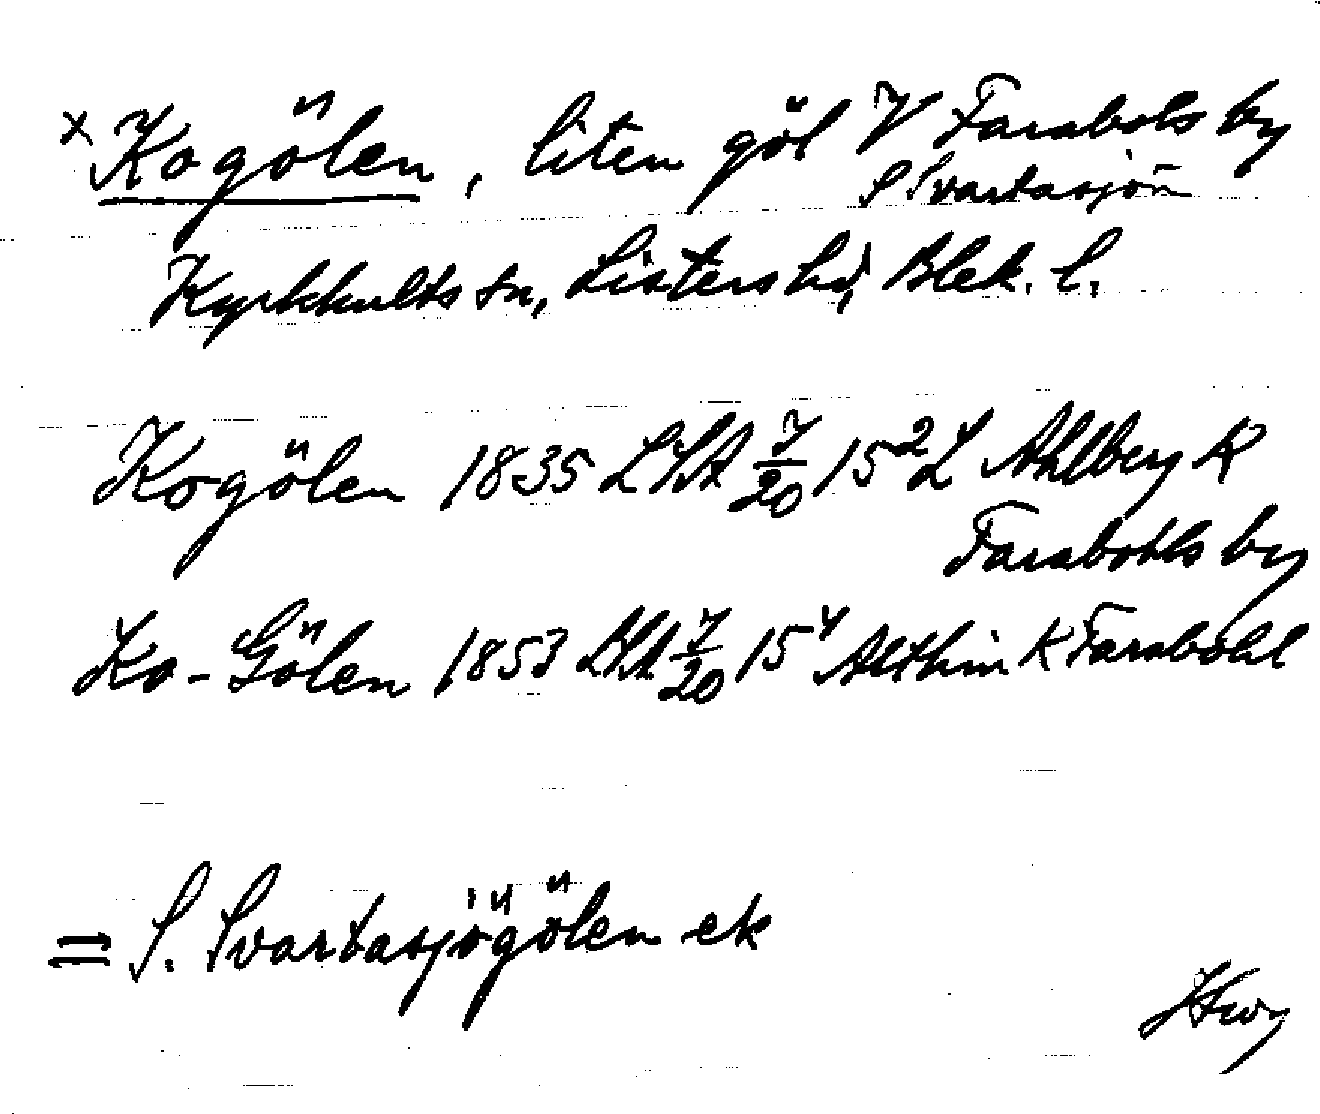 x Kogölen, liten göl V Farabols by
S Svartasjön
Kyrkhults sn, Listers hd, Blek. l.
Kogölen 1835 LSA 7/20 15² L Ahlberg K
Farabohls by
Ko-Gölen 1853 LSA 7/20 15⁴ Althin K Farabohl
= S. Svartasjögölen ek